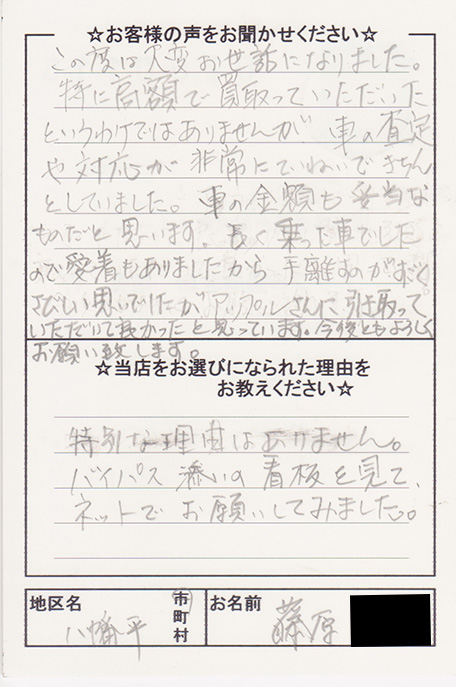 ☆お客様の声をお聞かせください☆
この度は大変お世話になりました。
特に高額で買取っていただいた
というわけではありませんが 車の査定
や対応が非常にていねいできちん
としていました。車の金額も妥当な
ものだと思います。長く乗った車でした
ので愛着もありましたから手離すのがすごく
さびしい思いでしたがアップルさんに引き取って
いただいて良かったと思っています。今後ともよろしく
お願い致します。
☆当店をお選びになられた理由を
お教えください☆
特別な理由はありません。
バイパス添いの看板を見て、
ネットでお願いしてみました。
地区名
八幡平
市
町
村
お名前
藤原